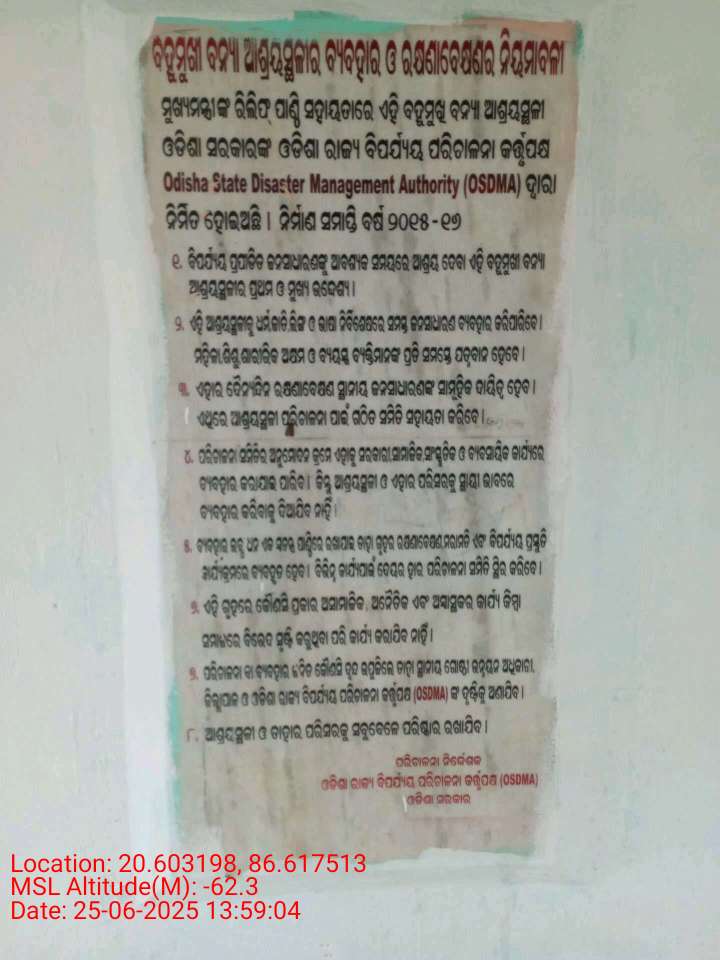 ବହୁମୁଖୀ ବନ୍ୟା ଆଶ୍ରୟସ୍ଥଳୀର ବ୍ୟବହାର ଓ ରକ୍ଷଣାବେକ୍ଷଣର ନିୟମାବଳୀ
ମୁଖ୍ୟମନ୍ତ୍ରୀଙ୍କ ରିଲିଫ୍ ପାଣ୍ଠି ସହାୟତାରେ ଏହି ବହୁମୁଖୀ ବନ୍ୟା ଆଶ୍ରୟସ୍ଥଳୀ
ଓଡିଶା ସରକାରଙ୍କ ଓଡିଶା ରାଜ୍ୟ ବିପର୍ଯ୍ୟୟ ପରିଚାଳନା କର୍ତ୍ତୃପକ୍ଷ
Odisha State Disaster Management Authority (OSDMA) ଦ୍ୱାରା
ନିର୍ମିତ ହୋଇଅଛି । ନିର୍ମାଣ ସମାପ୍ତି ବର୍ଷ ୨୦୧୫-୧୭
୧. ବିପର୍ଯ୍ୟୟ ପ୍ରପୀଡିତ ଜନସାଧାରଣଙ୍କୁ ଆବଶ୍ୟକ ସମୟରେ ଆଶ୍ରୟ ଦେବା ଏହି ବହୁମୁଖୀ ବନ୍ୟା
ଆଶ୍ରୟସ୍ଥଳୀର ପ୍ରଥମ ଓ ମୁଖ୍ୟ ଉଦ୍ଦେଶ୍ୟ ।
୨. ଏହି ଆଶ୍ରୟସ୍ଥଳୀକୁ ଧର୍ମ,ଜାତି,ଲିଙ୍ଗ ଓ ଭାଷା ନିର୍ବିଶେଷରେ ସମସ୍ତ ଜନସାଧାରଣ ବ୍ୟବହାର କରିପାରିବେ ।
ମହିଳା,ଶିଶୁ,ଶାରୀରିକ ଅକ୍ଷମ ଓ ବୟସ୍କ ବ୍ୟକ୍ତିମାନଙ୍କ ପ୍ରତି ସମସ୍ତେ ଯତ୍ନବାନ ହେବେ ।
୩. ଏହାର ଦୈନ୍ୟନ୍ଦିନ ରକ୍ଷଣାବେକ୍ଷଣ ସ୍ଥାନୀୟ ଜନସାଧାରଣଙ୍କ ସାମୂହିକ ଦାୟିତ୍ୱ ହେବ ।
ଏଥିରେ ଆଶ୍ରୟସ୍ଥଳୀ ପରିଚାଳନା ପାଇଁ ଗଠିତ ସମିତି ସହାୟତା କରିବେ ।
୪. ପରିଚାଳନା ସମିତିର ଅନୁମୋଦନ କ୍ରମେ ଏହାକୁ ସରକାରୀ,ସାମାଜିକ,ସାଂସ୍କୃତିକ ଓ ବ୍ୟବସାୟିକ କାର୍ଯ୍ୟରେ
ବ୍ୟବହାର କରାଯାଇ ପାରିବ । କିନ୍ତୁ ଆଶ୍ରୟସ୍ଥଳୀ ଓ ଏହାର ପରିସରକୁ ସ୍ଥାୟୀ ଭାବରେ
ବ୍ୟବହାର କରିବାକୁ ଦିଆଯିବ ନାହିଁ ।
୫. ବ୍ୟବହାର ଲବ୍ଧ ଧନ ଏକ ସ୍ୱତନ୍ତ୍ର ପାଣ୍ଠିରେ ରଖାଯାଇ ତାହା ଗୃହର ରକ୍ଷଣାବେକ୍ଷଣ,ମରାମତି ଏବଂ ବିପର୍ଯ୍ୟୟ ପ୍ରସ୍ତୁତି
କାର୍ଯ୍ୟକ୍ରମରେ ବ୍ୟବହୃତ ହେବ । ବିଭିନ୍ନ କାର୍ଯ୍ୟପାଇଁ ଦେୟର ହାର ପରିଚାଳନା ସମିତି ସ୍ଥିର କରିବେ ।
୬. ଏହି ଗୃହରେ କୌଣସି ପ୍ରକାର ଅସାମାଜିକ, ଅନୈତିକ ଏବଂ ଅସ୍ୱାସ୍ଥ୍ୟକର କାର୍ଯ୍ୟ କିମ୍ବା
ସମାଜରେ ବିଭେଦ ସୃଷ୍ଟି କରୁଥିବା ପରି କାର୍ଯ୍ୟ କରାଯିବ ନାହିଁ ।
୭. ପରିଚାଳନା ବା ବ୍ୟବହାର ଜନିତ କୌଣସି ଦ୍ୱନ୍ଦ ଉପୁଜିଲେ ତାହା ସ୍ଥାନୀୟ ଗୋଷ୍ଠୀ ଉନ୍ନୟନ ଅଧିକାରୀ,
ଜିଲ୍ଲାପାଳ ଓ ଓଡିଶା ରାଜ୍ୟ ବିପର୍ଯ୍ୟୟ ପରିଚାଳନା କର୍ତ୍ତୃପକ୍ଷ (OSDMA) ଙ୍କ ଦୃଷ୍ଟିକୁ ଅଣାଯିବ ।
୮. ଆଶ୍ରୟସ୍ଥଳୀ ଓ ତାହାର ପରିସରକୁ ସବୁବେଳେ ପରିଷ୍କାର ରଖାଯିବ ।
ପରିଚାଳନା ନିର୍ଦ୍ଦେଶକ
ଓଡିଶା ରାଜ୍ୟ ବିପର୍ଯ୍ୟୟ ପରିଚାଳନା କର୍ତ୍ତୃପକ୍ଷ (OSDMA)
ଓଡିଶା ସରକାର
Location: 20.603198, 86.617513
MSL Altitude(M): -62.3
Date: 25-06-2025 13:59:04